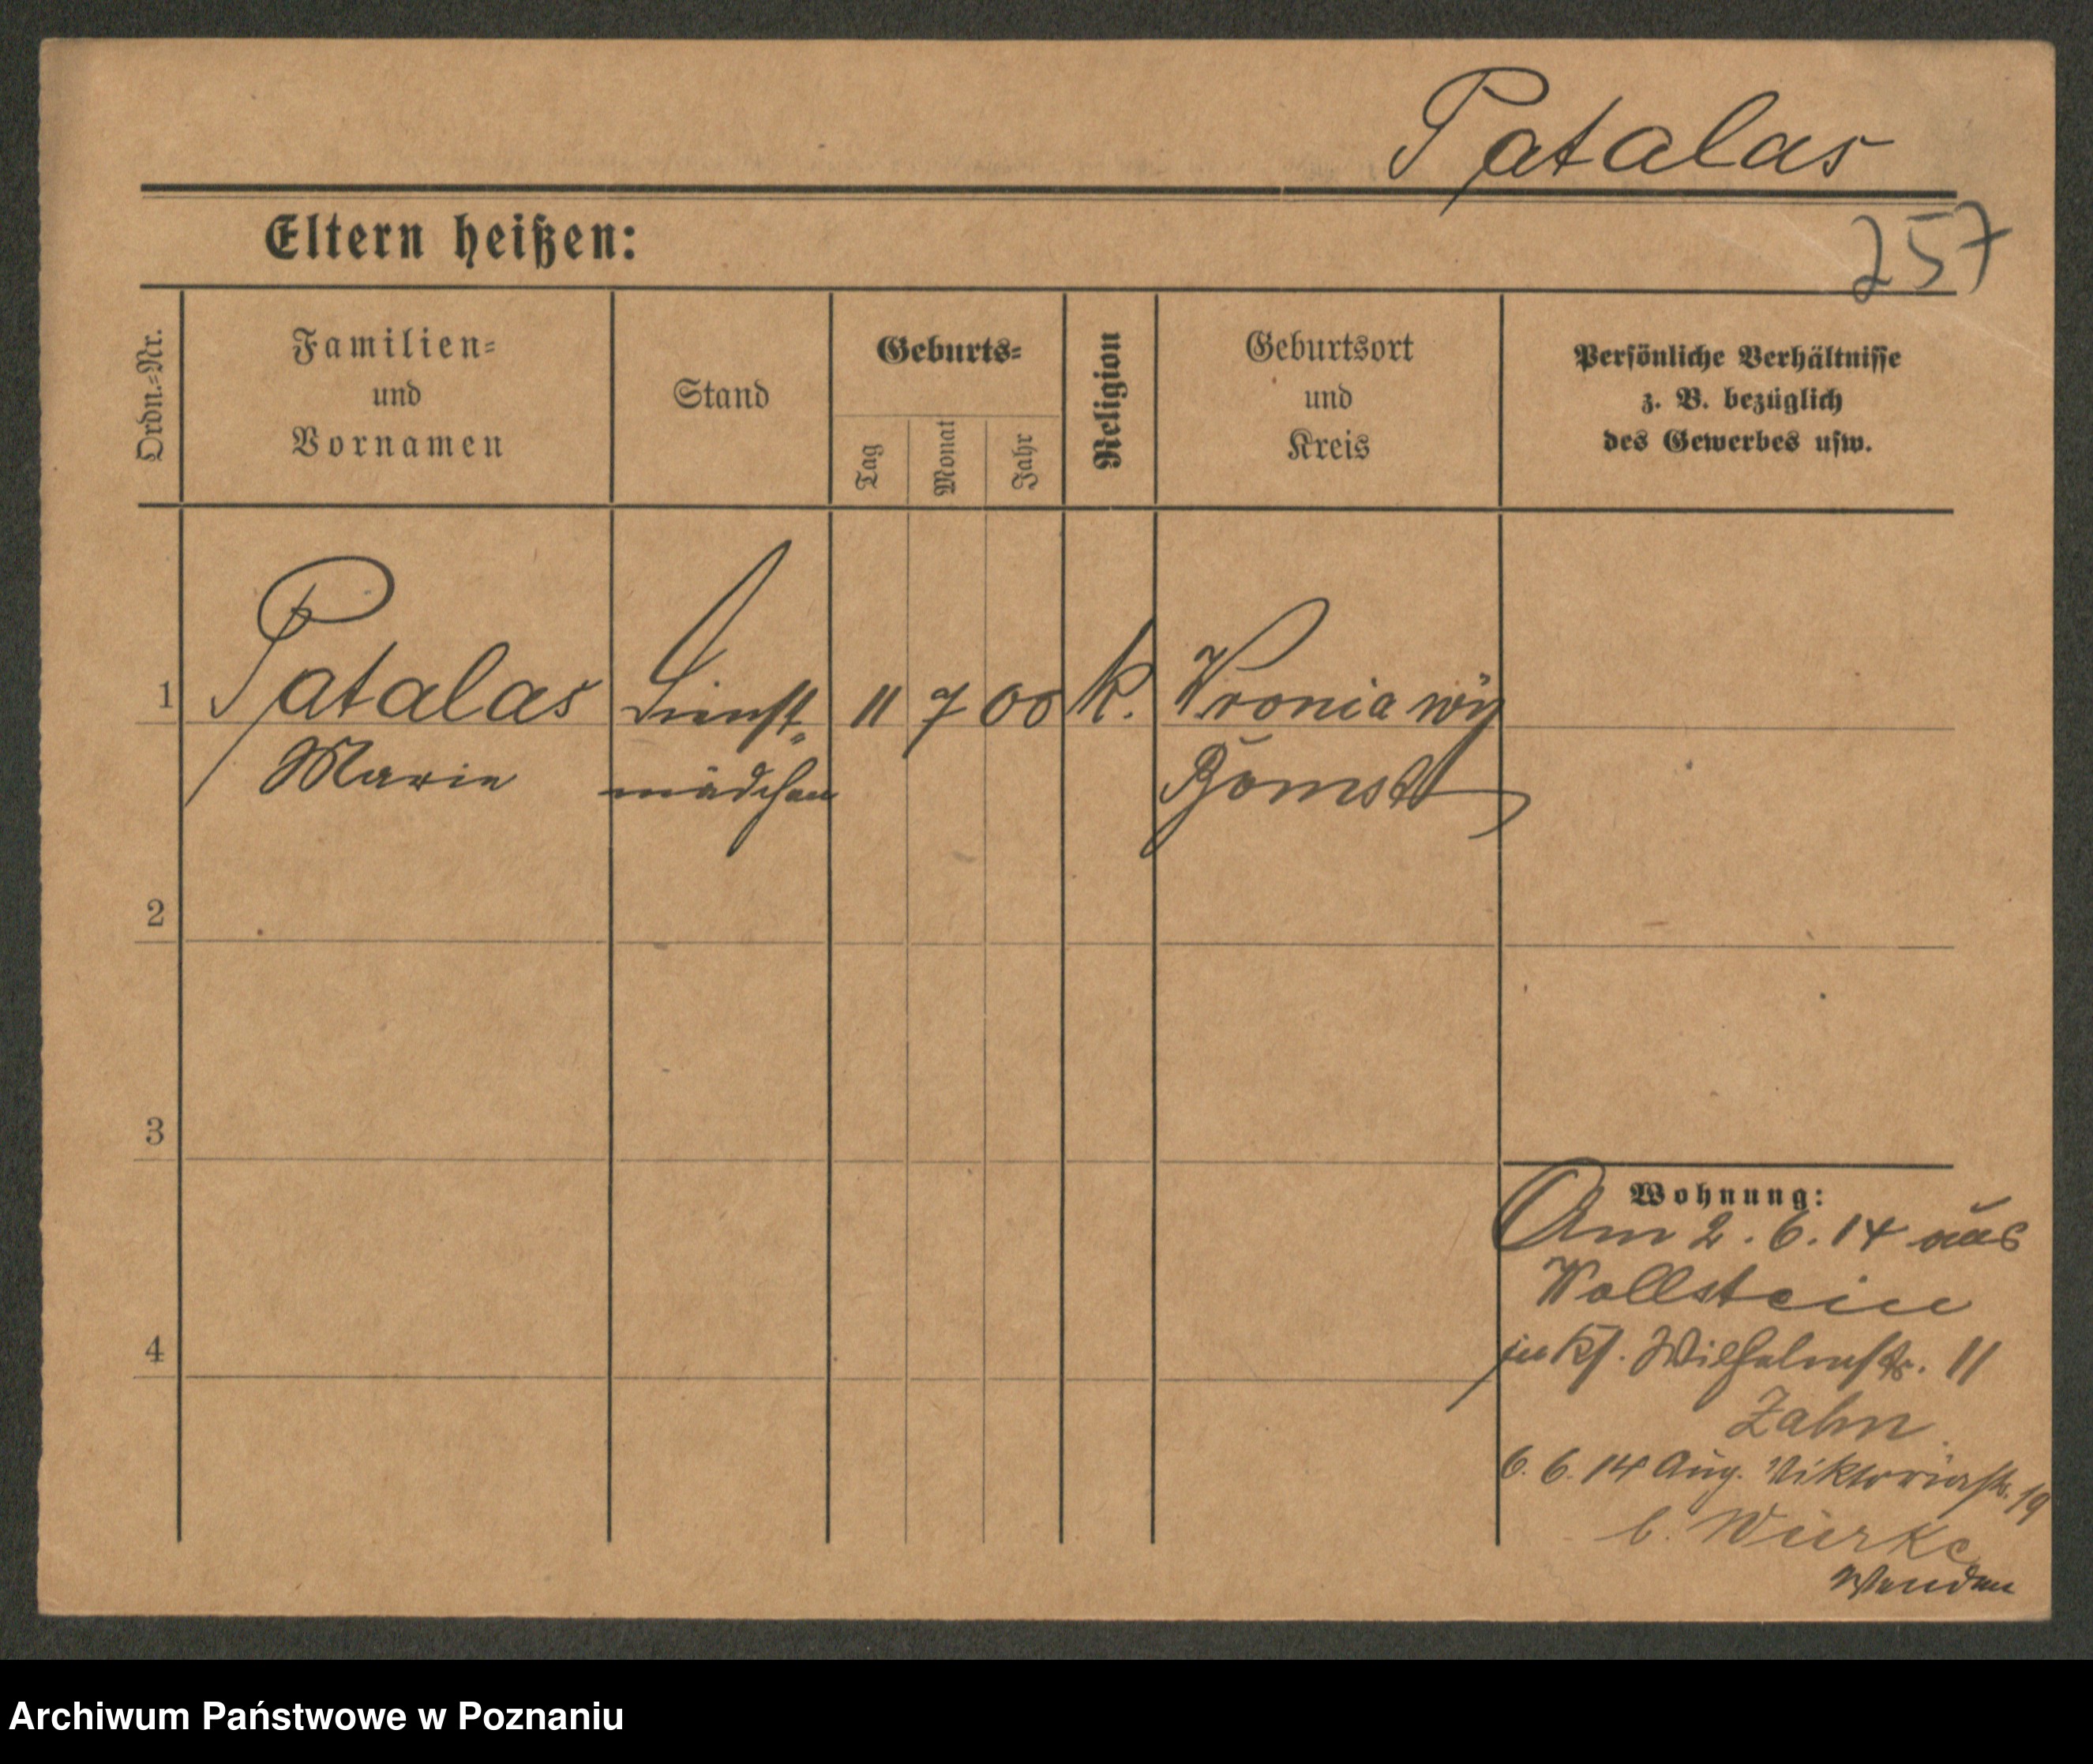 Patalas
257
Eltern heißen:
Ordn.=Nr.
Familien=
und
Vornamen
Stand
Geburts=
Tag
Monat
Jahr
Religion
Geburtsort
und
Kreis
Persönliche Verhältnisse
z. B. bezüglich
des Gewerbes usw.
1 Patalas Dienst= 11 7 00 k. Wroniawy
Marie mädchen Bomst
2
3
4
Wohnung:
Am 2. 6. 14 aus
Wollstein
Wilhelmstr. 11
Zahn
6. 6. 14 Aug. Viktoriastr. 19
b. Würke
Wenden
Archiwum Państwowe w Poznaniu